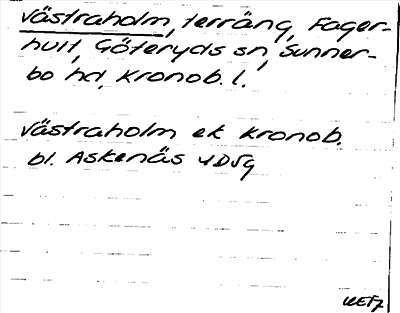 Västraholm, terräng, Fager-
hult, Göteryds sn, Sunner-
bo hd, Kronob. l.
Västraholm ek Kronob.
bl. Askenäs 4D5g